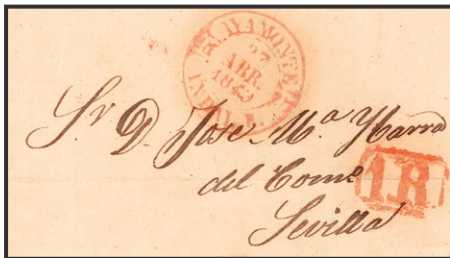 AYAMONTE
27
ABR.
1843
ANDAL. B.
Sr D. Jose Mª Ybarra
del Comº
1R
Sevilla